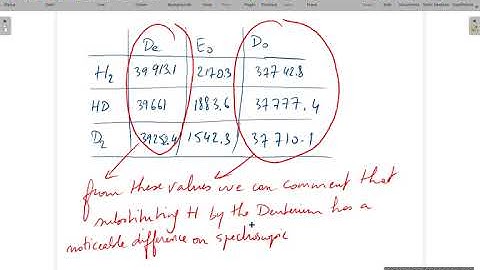 De E0 D0
H2 39913.1 2170.3 37742.8
HD 39661 1883.6 37777.4
D2 39252.4 1542.3 37710.1
from these values we can comment that
substituting H by the Deuterium has a
noticeable difference on spectroscopic